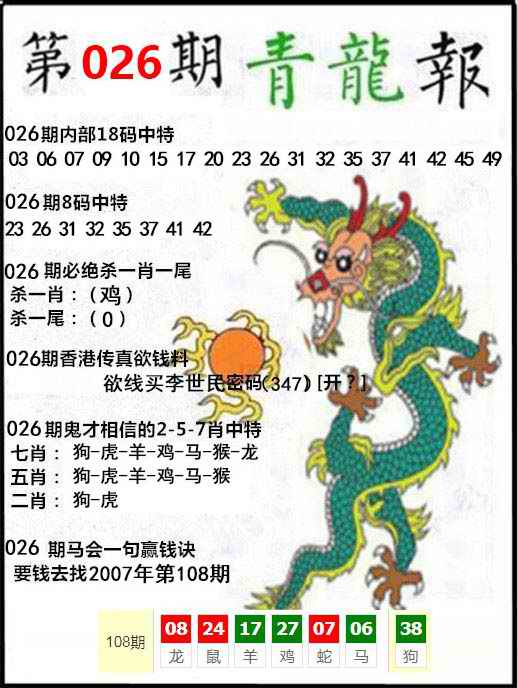 第026期青龍報
026期内部18码中特
03 06 07 09 10 15 17 20 23 26 31 32 35 37 41 42 45 49
026期8码中特
23 26 31 32 35 37 41 42
026 期必绝杀一肖一尾
杀一肖：（鸡）
杀一尾：（0）
026期香港传真欲钱料
欲线买李世民密码(347)[开?]
026期鬼才相信的2-5-7肖中特
七肖： 狗-虎-羊-鸡-马-猴-龙
五肖： 狗-虎-羊-鸡-马-猴
二肖： 狗-虎
026 期马会一句赢钱诀
要钱去找2007年第108期
108期 08 24 17 27 07 06 38
龙 鼠 羊 鸡 蛇 马 狗